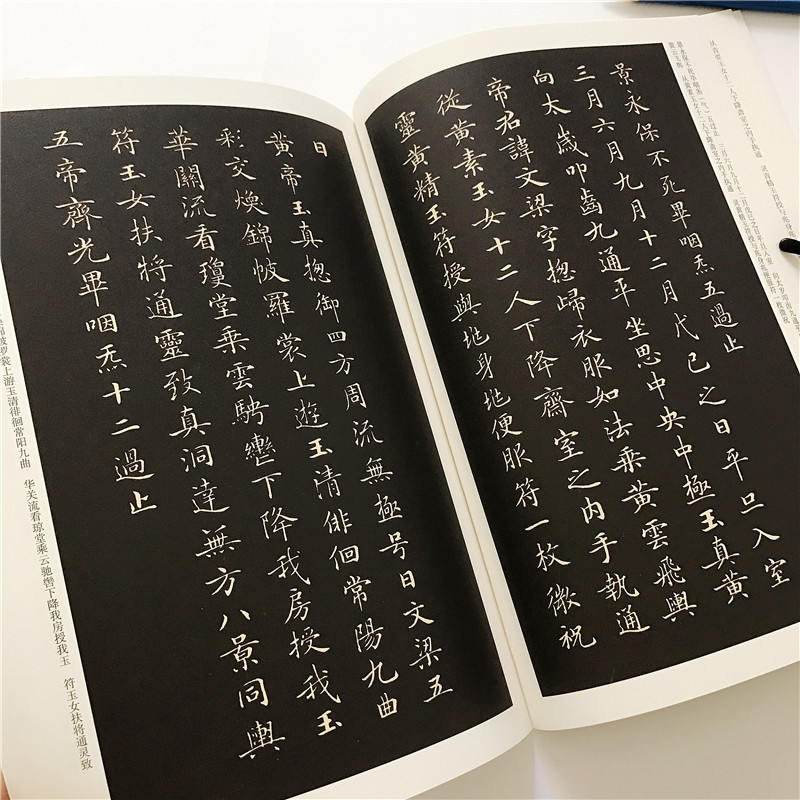 从黄素玉女十二人下降斋室之内手执通 灵黄精玉符授与兆身
景永保不死畢咽炁五過止
三月六月九月十二月戊己之日平旦入室
向太歲叩齒九通平坐思中央中極玉真黃
帝君諱文梁字揔歸衣服如法乘黃雲飛輿
從黃素玉女十二人下降齋室之内手執通
靈黃精玉符授與兆身兆便服符一枚微祝
曰
黃帝玉真揔御四方周流無極号曰文梁五
彩交煥錦帔羅裳上遊玉清徘徊常陽九曲
華關流看瓊堂乘雲騁轡下降我房授我玉
符玉女扶將通靈致真洞達無方八景同輿
五帝齊光畢咽炁十二過止
帔罗裳上游玉清徘徊常阳九曲 华关流看琼堂乘云骋辔下降我房授我玉 符玉女扶将通灵致